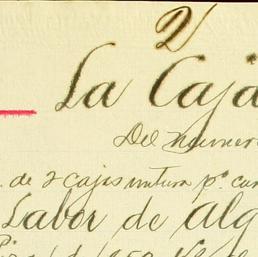 2/
La Caja
Del numer
de 2 cajas untura pª. car
Labor de alg